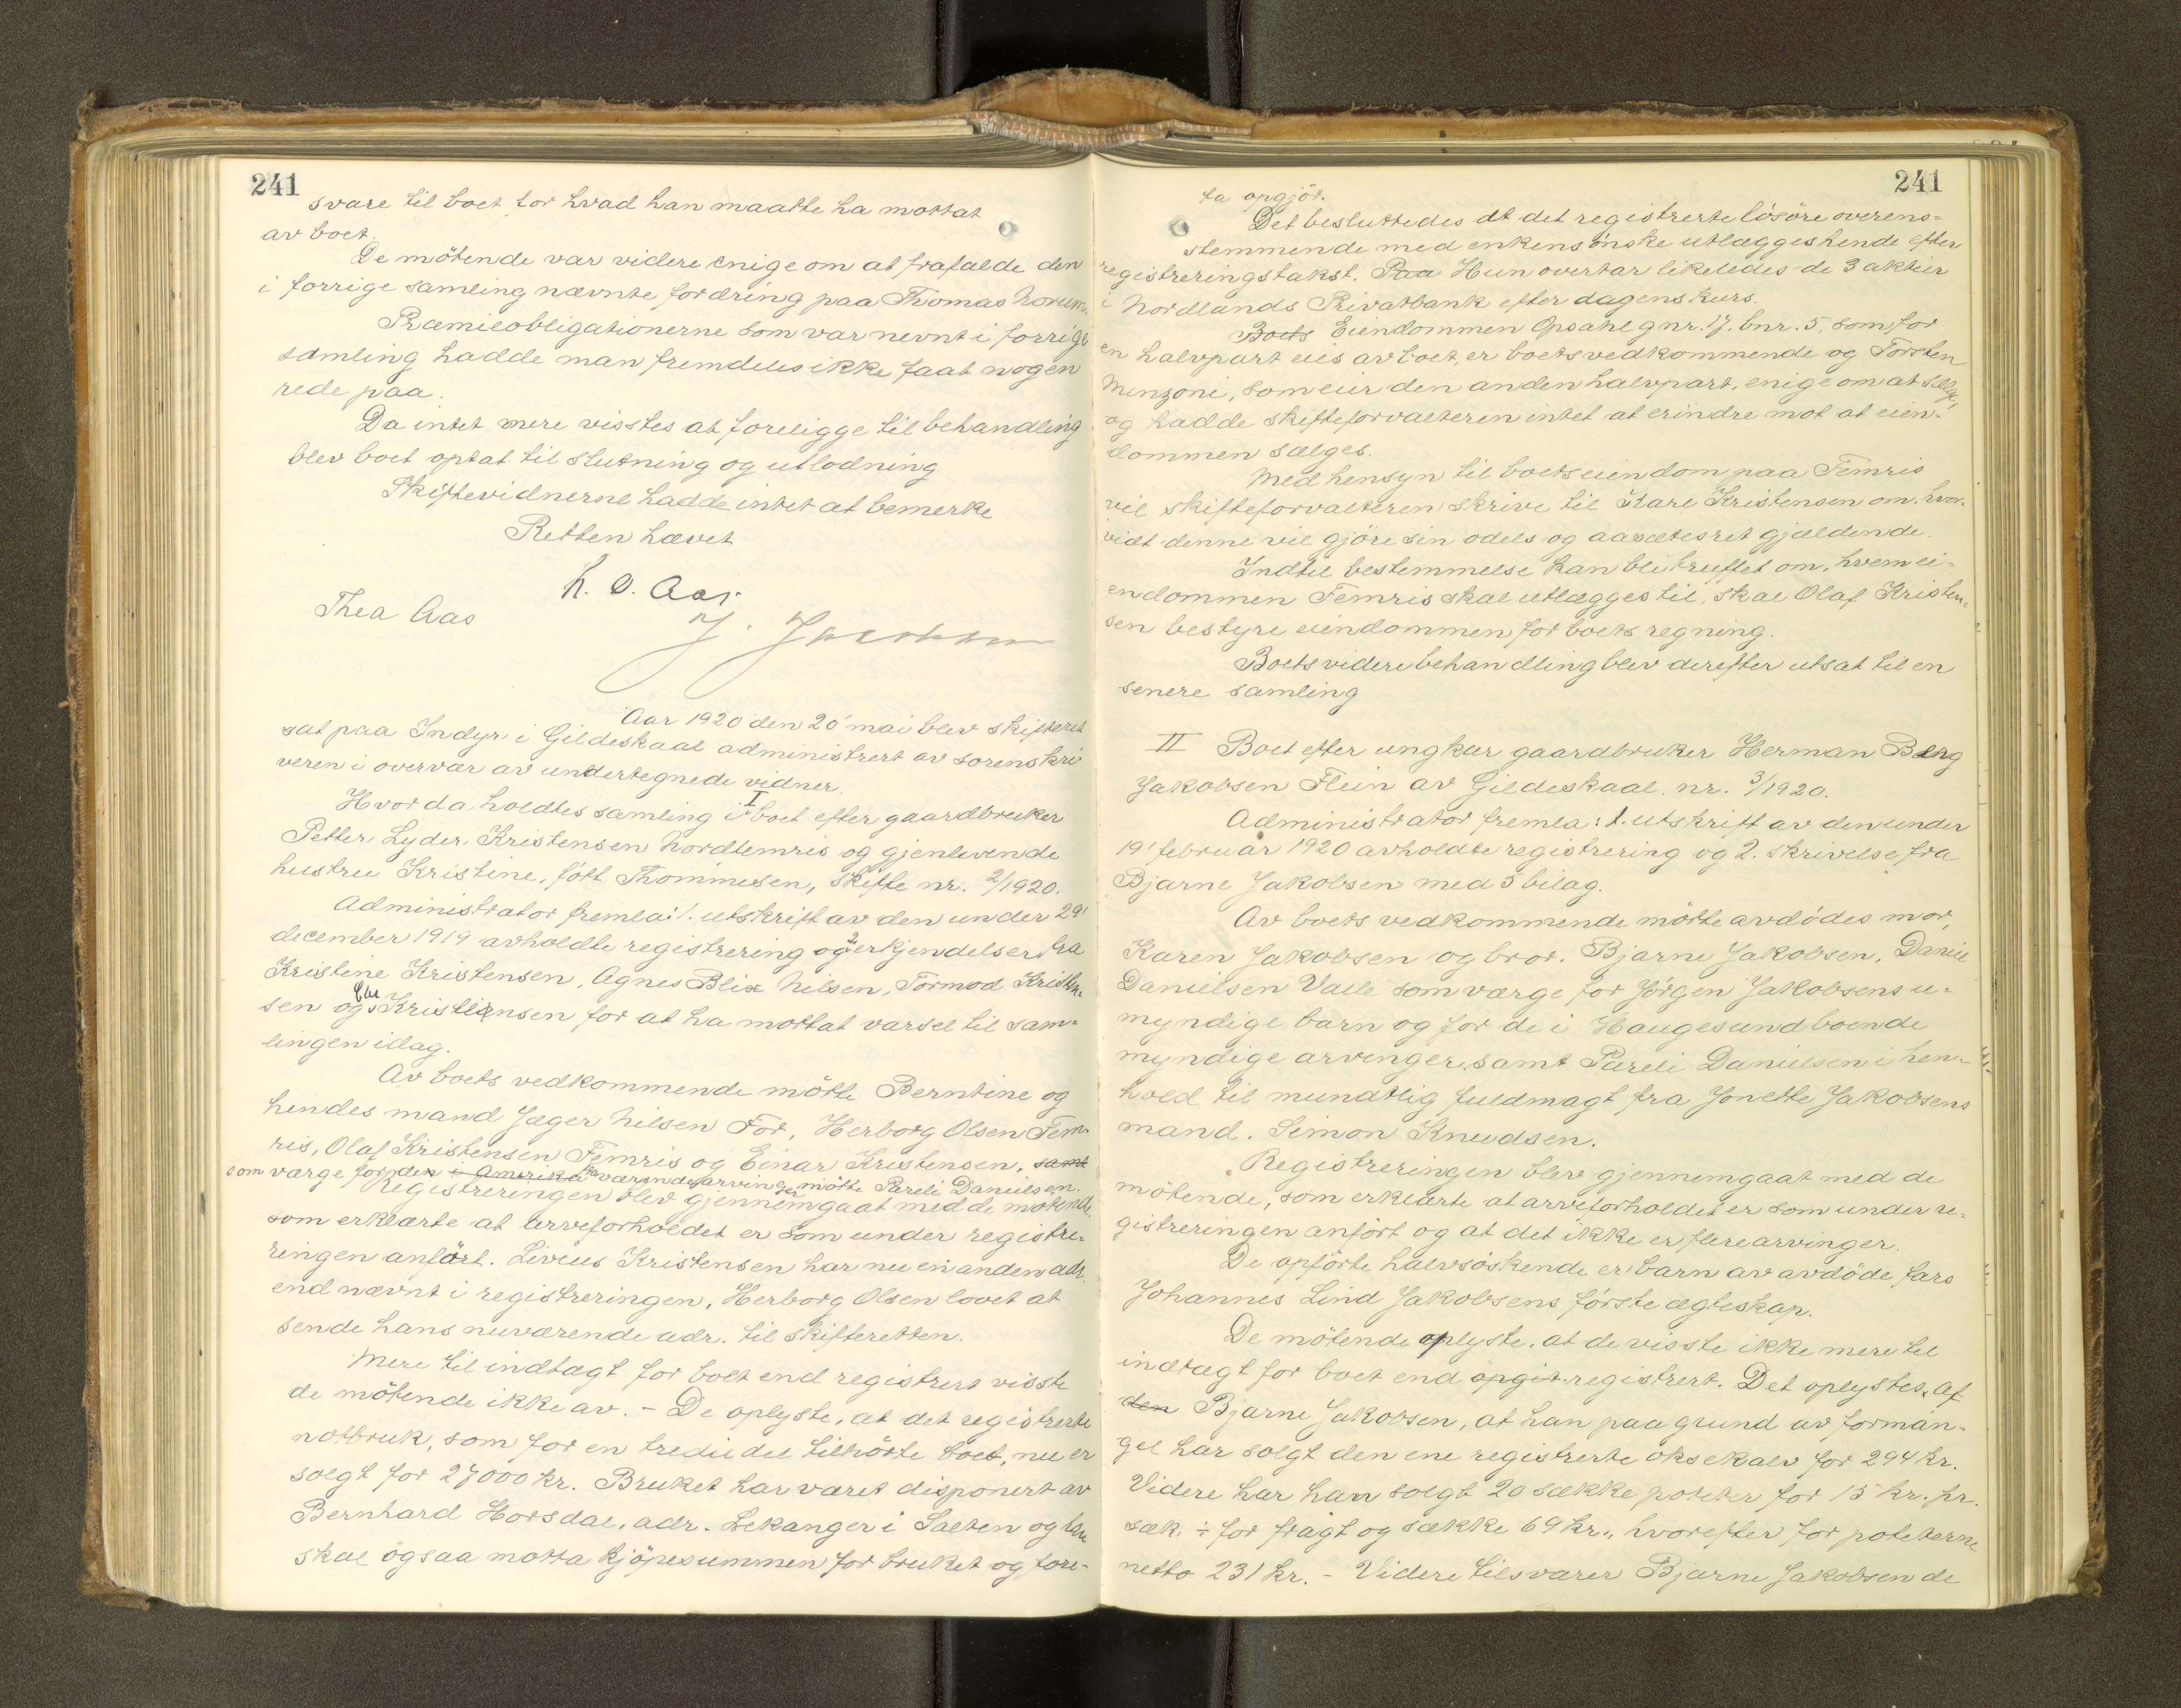 241
svare til boet for hvad han maatte ha mottat
av boet.
De mötende var videre enige om at frafalde den
i forrige samling nævnte fordring paa Thomas Horum.
Præmieobligationerne som var nevnt i forrige
samling hadde man fremdeles ikke faat nogen
rede paa.
Da intet mere visstes at foreligge til behandling
blev boet optat til slutning og utlodning
Skiftevidnerne hadde intet at bemerke
Retten hævet
H. O. Aas.
Thea Aas
J. Jacobsen
Aar 1920 den 20' mai blev skifteret
sat paa Indyr i Gildeskaal administrert av sorenskri
veren i overvær av undertegnede vidner.
Hvorda holdtes samling i I boet efter gaardbruker
Petter Lyder Kristensen Nordfemris og gjenlevende
hustru Kristine, født Thommesen, skifte nr. 2/1920.
Administrator fremla: 1. utskrift av den under 29'
december 1919 avholdte registrering og 2 erkjendelser fra
Kristine Kristensen, Agnes Blix Nilsen, Tormod Kristen-
sen og Kristiansen for at ha mottat varsel til sam-
lingen idag.
Av boets vedkommende mötte Berntine og
hendes mand Jæger Nilsen För, Herborg Olsen Fem-
ris, Olaf Kristensen Femris og Einar Kristensen, samt
som værge for den i Amerika fraværende arvinger mötte Pareli Danielsen.
Registreringen blev gjennemgaat med de mötende,
som erklærte at arveforholdet er som under registre-
ringen anfört. Livius Kristensen har nu en anden adr.
end nævnt i registreringen, Herborg Olsen lovet at
sende hans nuværende adr. til skifteretten.
Mere til indtægt for boet end registrert visste
de mötende ikke av. - De oplyste, at det registrerte
notbruk, som for en trediedel tilhörte boet, nu er
solgt for 27000 kr. Bruket har været disponert av
Bernhard Horsdal, adr. Lekanger i Salten og han
skal ogsaa motta kjöpesummen for bruket og fore-
241
ta opgjör.
Det besluttedes at det registrerte lösöre overens-
stemmende med enkens önske utlægges hende efter
registreringstakst. Paa Hun overtar likeledes de 3 aktier
i Nordlands Privatbank efter dagens kurs.
Boets Eiendommen Opsahl gnr. 17, bnr. 5, som for
en halvpart eies av boet, er boets vedkommende og Torsten
Menzoni, som eier den anden halvpart, enige om at sælge,
og hadde skifteforvalteren intet at erindre mot at eien-
dommen sælges.
Med hensyn til boets eiendom paa Femris
vil skifteforvalteren skrive til Karl Kristensen om, hvor-
vidt denne vil gjöre sin odels og aasætesret gjældende.
Indtil bestemmelse kan bli truffet om, hvem ei-
endommen Femris skal utlægges til, skal Olaf Kristen-
sen bestyre eiendommen for boets regning.
Boets videre behandling blev derefter utsat til en
senere samling
II Boet efter ungkar gaardbruker Herman Berg
Jakobsen Flein av Gildeskaal. nr. 3/1920.
Administrator fremla: 1. utskrift av den under
19' februar 1920 avholdte registrering og 2. skrivelse fra
Bjarne Jakobsen med 5 bilag.
Av boets vedkommende mötte avdödes mor,
Karen Jakobsen og bror. Bjarne Jakobsen, Daniel
Danielsen Valle som værge for Jörgen Jakobsens u-
myndige barn og for de i Haugesund boende
myndige arvinger, samt Pareli Danielsen i hen-
hold til mundtlig fuldmagt fra Jonette Jakobsens
mand. Simon Knudsen.
Registreringen blev gjennemgaat med de
mötende, som erklærte at arveforholdet er som under re-
gistreringen anfört og at det ikke er flere arvinger.
De opförte halvsöskende er barn av avdöde fars
Johannes Lind Jakobsens förste ægteskap.
De mötende oplyste, at de visste ikke mere til
indtægt for boet end opgit registrert. Det oplystes, af
den Bjarne Jakobsen, at han paa grund av forman-
gel har solgt den ene registrerte oksekalv for 294 kr.
Videre har han solgt 20 sække poteter for 15 kr. pr.
sæk ÷ for fragt og sække 69 kr., hvorefter for poteterne
netto 231 kr. - Videre tilsvarer Bjarne Jakobsen de